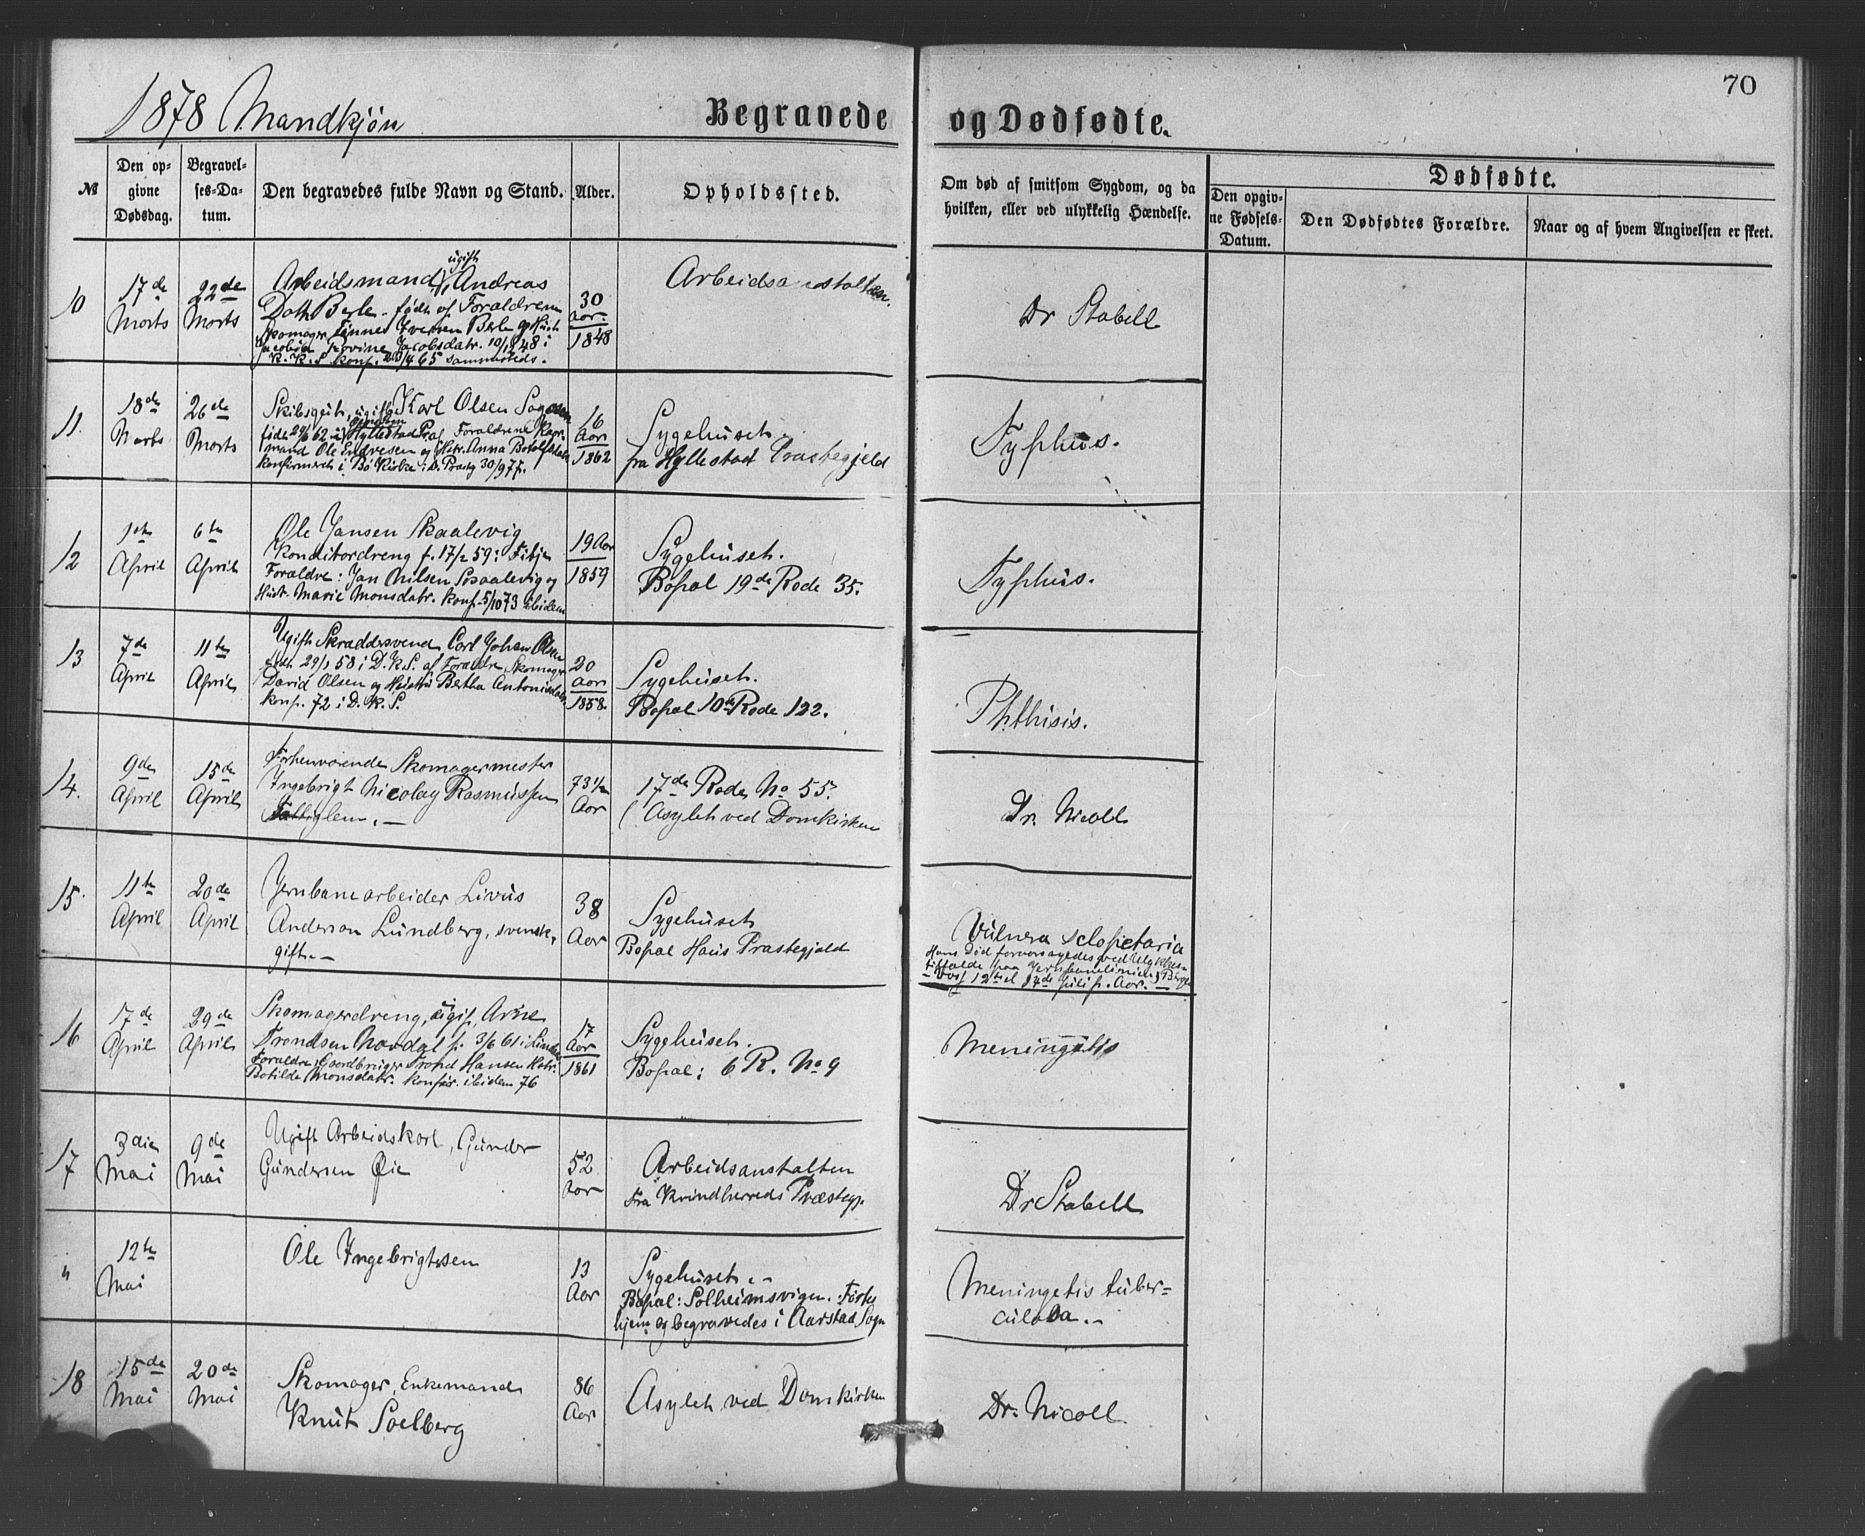 70
1878 Mandkjøn
Begravede og Dødfødte.
№
Den op-
givne
Dødsdag.
Begravel-
ses-Da-
tum.
Den begravedes fulde Navn og Stand.
Alder.
Opholdssted.
Om død af smitsom Sygdom, og da
hvilken, eller ved ulykkelig Hændelse.
Dødfødte.
Den opgiv-
ne Fødsels-
Datum.
Den Dødfødtes Forældre.
Naar og af hvem Angivelsen er skeet.
10
17de
Marts
22de
Marts
ugift
Arbeidsmand, Andreas
Berle. født af Forældrene
Skomager Iversen Berle og Hustr
Jacobsdatr. 10/ 48 i
K. K. S konf. /4 65 sammesteds.
30
Aar.
1848
Arbeidsanstalten.
Dr Stabell
11.
18de
Marts
26de
Marts
Skibsgut, ugift Karl Olsen
født 29/6 62 i Hyllestad Præ. Forældrene
mand Ole og Hstr. Anna
konfirmeret i Bø Kirke i D. Præstg 30/9 77.
16
Aar
1862
Sygehuset.
fra Hyllestad Præstegjeld
Typhus.
12
1ste
April
6te
April
Ole Jansen Skaalevig
Konditordreng f. 17/2 59 i Fitje
Forældre: Jan Nilsen og
Hust. Marie Monsdatr. konf. 5/10 73 ibidem
19 Aar
1859
Sygehuset.
Bopæl 19de Rode 35.
Typhus.
13
7de
April
11te
April
Ugift Skræddersvend Carl Johan Olsen
født 29/1 58 i D. K. S. af Forældre Skomager
David Olsen og Hustru Bertha
konf. 72 i D. K. S.
20
Aar
1858.
Sygehuset.
Bopæl 10de Rode 122.
Phthisis.
14.
9de
April
15de
April
Forhenværende Skomagermester
Ingebrigt Nicolay Rasmussen
Fattiglem.
73 1/2
Aar
17de Rode No 55.
(Asylet ved Domkirken
Dr. Nicoll
15.
11te
April
20de
April
Jernbanearbeider Livus
Anderson Lundberg, svensk,
gift.
38
Aar
Sygehuset
Bopæl Haus Præstegjeld
Vulnera sclopetaria
Hans Død foraarsagedes ved Ulykkes-
tilfælde paa Jernbanelinien
Voss 12te Juli f. Aar.
16
17de
April
29de
April
Skomagerdreng, ugift, Arne
Trondsen Nordal f. 3/6 61 i
Forældre, Gaardbruger Trond Hansen Hstr.
Botilde Monsdatr. konfir. ibidem 76
17
Aar
1861
Sygehuset.
Bopæl: 6 R. No 9
Meningitis
17
3die
Mai
9de
Mai
Ugift Arbeidskarl, Gunder
Gundersen Øie
52
Aar
Arbeidsanstalten
Fra Kvindherreds Præstegj.
Dr Stabell
"
12te
Mai
Ole Ingebrigtsen
13
Aar
Sygehuset.
Bopæl: Solheimsvigen. Førtes
hjem og begravedes i Aarstad Sogn
Meningetis tuber-
culosa.
18
15de
Mai
20de
Mai
Skomager, Enkemand
Knut Soelberg
86
Aar
Asylet ved Domkirken
Dr. Nicoll